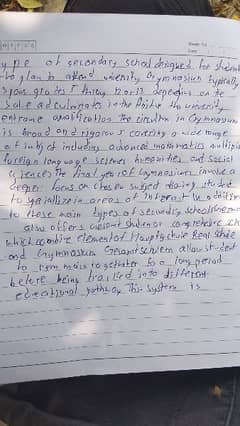 ype of secondary school designed for students
to plan to attend university Gymnasium typically
spans grades 5 throug 12 or 13 depending on the
State and culminates in the Abitur the university
entrance qualification The circulum in Gymnasiums
is broad and rigorous covering a wide range
of subject including advanced mathematics multiple
foreign language sciences humanities and social
sciences The final years of Gymnasiums involve a
deeper focus on chosen subject allowing student
to specialize in areas of interest In addition
to these main types of secondary school
also offers comprehensive
which combine element of Hauptschule Real schule
and Gymnasium Gesamtschulen allow student
to remain together for a long period
before being tracked into different
educational pathway This system is